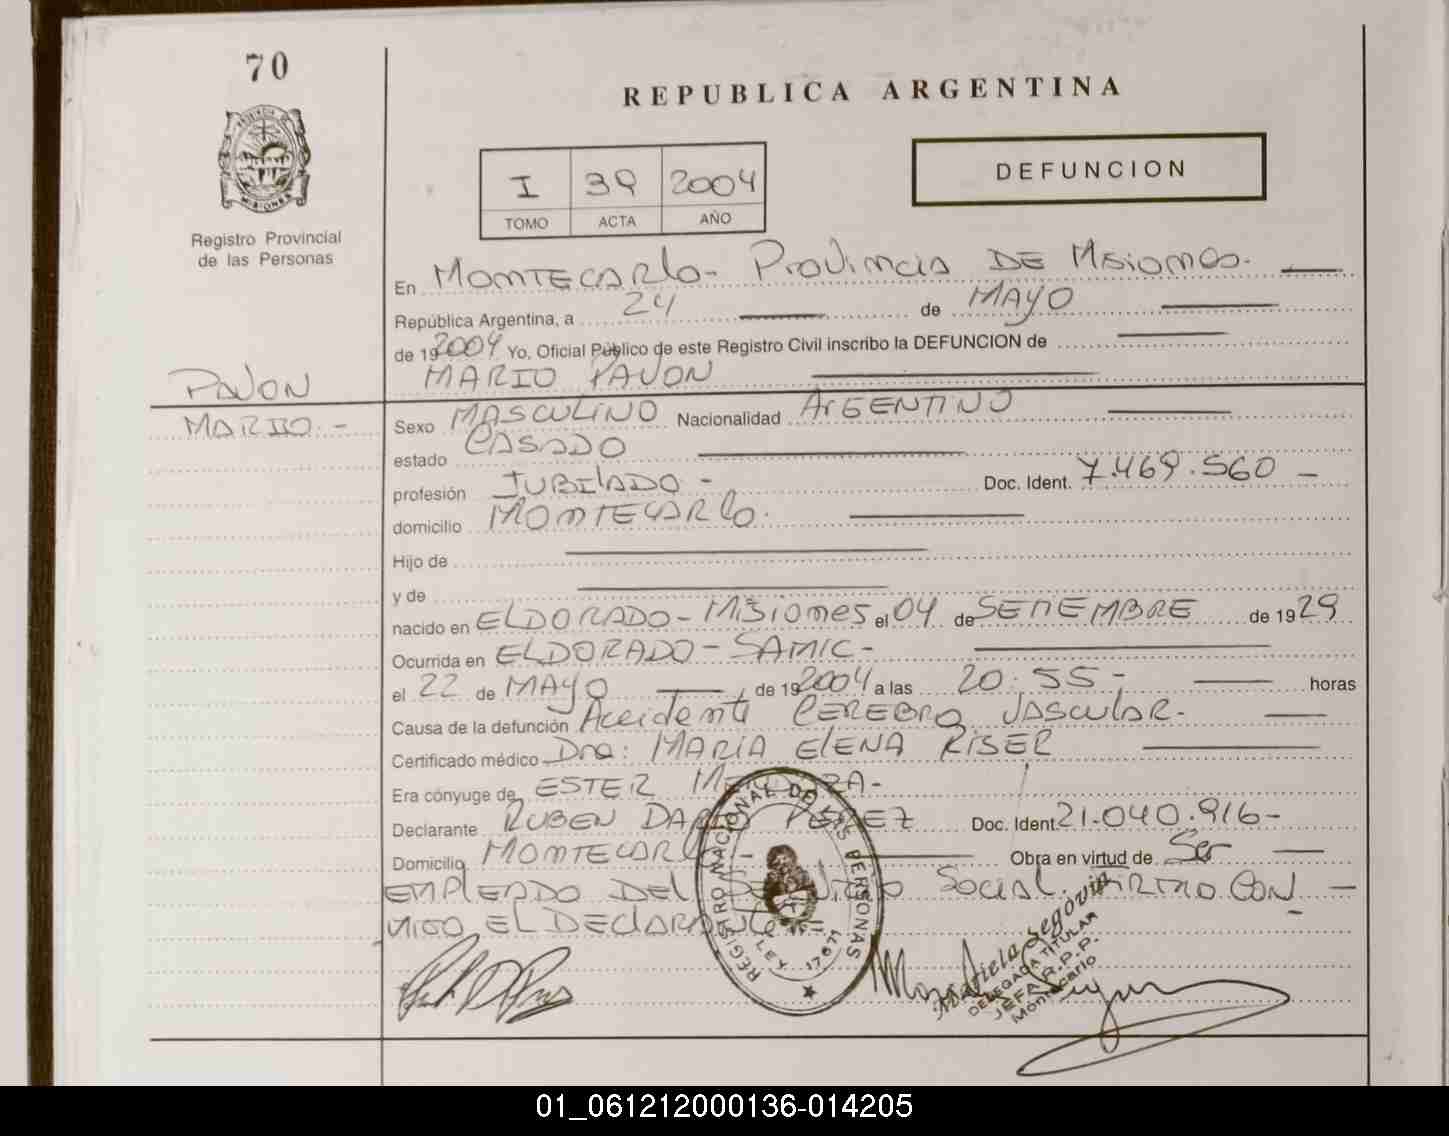 70
REPUBLICA ARGENTINA
PROVINCIA DE MISIONES
Registro Provincial
de las Personas
I 39 2004
TOMO ACTA AÑO
DEFUNCION
En MONTECARLO- PROVINCIA DE MISIONES.
República Argentina, a 24 de MAYO
de 19 2004 Yo, Oficial Público de este Registro Civil inscribo la DEFUNCION de
MARIO PAVON
PAVON
MARIO.-
Sexo MASCULINO Nacionalidad ARGENTINO
estado CASADO
profesión JUBILADO - Doc. Ident. 7.469.560 -
domicilio MONTECARLO.
Hijo de
y de
nacido en ELDORADO-MISIONES el 04 de SETIEMBRE de 1929
Ocurrida en ELDORADO-SAMIC-
el 22 de MAYO de 19 2004 a las 20:55- horas
Causa de la defunción Accidente CEREBRO VASCULAR-
Certificado médico Dra: MARIA ELENA RISER
Era cónyuge de ESTER
Declarante RUBEN DARIO PEREZ Doc. Ident. 21.040.916-
Domicilio MONTECARLO- Obra en virtud de Ser
EMPLEADO DEL SERVICIO SOCIAL. FIRMO CON-
MIGO EL DECLARANTE
REGISTRO NACIONAL DE LAS PERSONAS
LEY 17671
Mariela Segovia
DELEGADA TITULAR
JEFA R.P.P.
Montecarlo
01_061212000136-014205